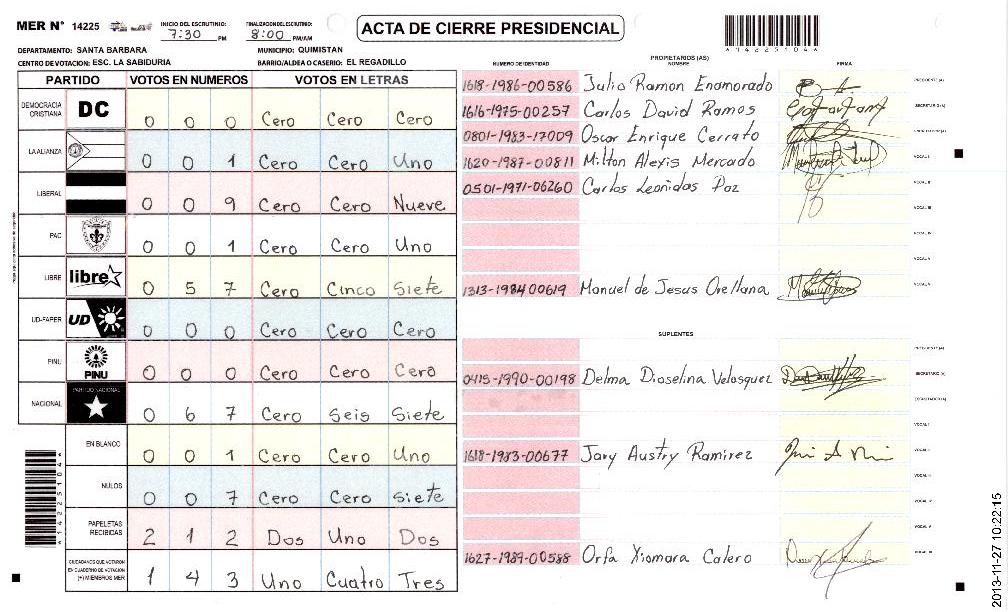 MER N° 14225 INICIO DEL ESCRUTINIO: 7:30 PM FINALIZACION DEL ESCRUTINIO: 8:00 PM/AM
ACTA DE CIERRE PRESIDENCIAL
DEPARTAMENTO: SANTA BARBARA MUNICIPIO: QUIMISTAN
CENTRO DE VOTACION: ESC. LA SABIDURIA BARRIO/ALDEA O CASERIO: EL REGADILLO
PARTIDO VOTOS EN NUMEROS VOTOS EN LETRAS
DEMOCRACIA CRISTIANA DC 0 0 0 Cero Cero Cero
LA ALIANZA 0 0 1 Cero Cero Uno
LIBERAL 0 0 9 Cero Cero Nueve
PAC 0 0 1 Cero Cero Uno
LIBRE libre 0 5 7 Cero Cinco Siete
UD-FAPER UD 0 0 0 Cero Cero Cero
PINU PINU 0 0 0 Cero Cero Cero
NACIONAL PARTIDO NACIONAL 0 6 7 Cero Seis Siete
EN BLANCO 0 0 1 Cero Cero Uno
NULOS 0 0 7 Cero Cero Siete
PAPELETAS RECIBIDAS 2 1 2 Dos Uno Dos
CIUDADANOS QUE VOTARON EN CUADERNO DE VOTACION (+) MIEMBROS MER 1 4 3 Uno Cuatro Tres
PROPIETARIOS (AS)
NUMERO DE IDENTIDAD NOMBRE FIRMA
1618-1986-00586 Julio Ramon Enamorado
1616-1975-00257 Carlos David Ramos
0801-1983-17009 Oscar Enrique Cerrato
1620-1987-00811 Milton Alexis Mercado
0501-1971-06260 Carlos Leonidas Paz
1313-1984-00619 Manuel de Jesus Orellana
SUPLENTES
0415-1990-00198 Delma Dioselina Velasquez
1618-1983-00677 Jary Austry Ramirez
1627-1989-00588 Orfa Xiomara Calero
2013-11-27 10:22:15